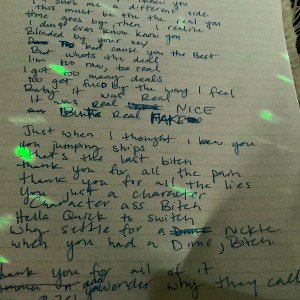 me a different side
This must be the the real you
time goes by, then I realize
I dont even know know you
Blinded by your sexy
had cause you the Best
But whats the deal
Im too raw, too real
I got too many deals
too get by the way I feel
Baby it was Real
It was real NICE
Real FAKE
Just when I thought I knew you
you jumping ships
that's the last bitch
thank you for all the pain
thank you for all the lies
You just a character
Character ass Bitch
Hella Quick to switch
why settle for a Dime nickle
when you had a Dime, Bitch.
thank you for all of it
and wonder why they call